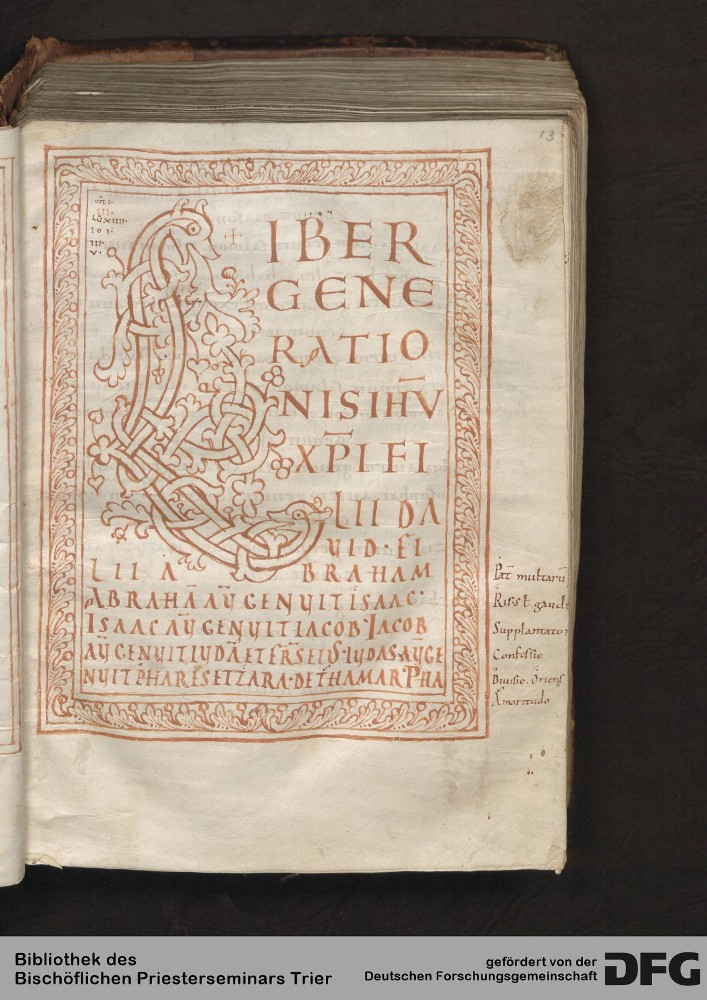 13
LIBER
GENE
RATIO
NISIHV̄
XP̄IFI
LIIDA
UID·FI
LII A BRAHAM
ABRAHĀ AŪ GENUIT ISAAC·
ISAAC AŪ GENUIT IACOB· IACOB
AŪ GENUIT IUDĀ ET FR̄S EIUS· IUDAS AŪ GE
NUIT PHARES ET ZARA· DE THAMAR· PHA
Pat̄ multarū
Supplantator
Confessio
Diuisio. Oriens
Amaritudo
Bibliothek des
Bischöflichen Priesterseminars Trier
gefördert von der
Deutschen Forschungsgemeinschaft
DFG